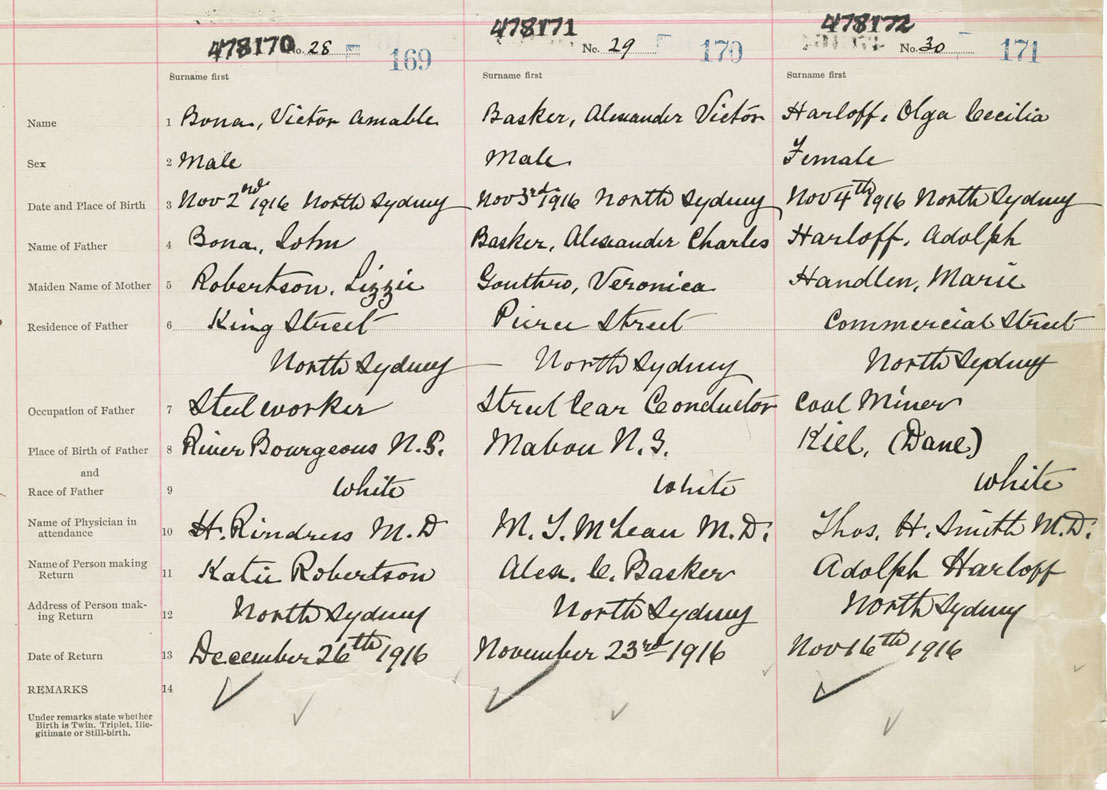 478170 478171 478172
No. 28 169 No. 29 170 No. 30 171
Surname first Surname first Surname first
Name 1 Bona, Victor Amable Basker, Alexander Victor Harloff, Olga Cecilia
Sex 2 Male Male Female
Date and Place of Birth 3 Nov 2nd 1916 North Sydney Nov 3rd 1916 North Sydney Nov 4th 1916 North Sydney
Name of Father 4 Bona, John Basker, Alexander Charles Harloff, Adolph
Maiden Name of Mother 5 Robertson, Lizzie Gouthro, Veronica Handlen, Marie
Residence of Father 6 King Street Pierce Street Commercial Street
North Sydney North Sydney North Sydney
Occupation of Father 7 Steel worker Street Car Conductor Coal Miner
Place of Birth of Father 8 River Bourgeous N.S. Mabou N.S. Kiel, (Dane)
and
Race of Father 9 White White White
Name of Physician in
attendance 10 H. Rindress M.D M. T. McLean M.D. Thos. H. Smith M.D.
Name of Person making
Return 11 Katie Robertson Alex. C. Basker Adolph Harloff
Address of Person mak-
ing Return 12 North Sydney North Sydney North Sydney
Date of Return 13 December 26th 1916 November 23rd 1916 Nov 16th 1916
REMARKS 14
Under remarks state whether
Birth is Twin, Triplet, Ille-
gitimate or Still-birth.